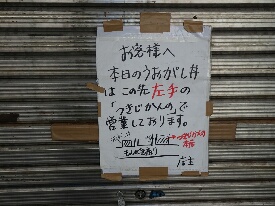 お客様へ
本日のうおがし丼
は この先左手の
「つきじかんの」で
営業しております。
店主